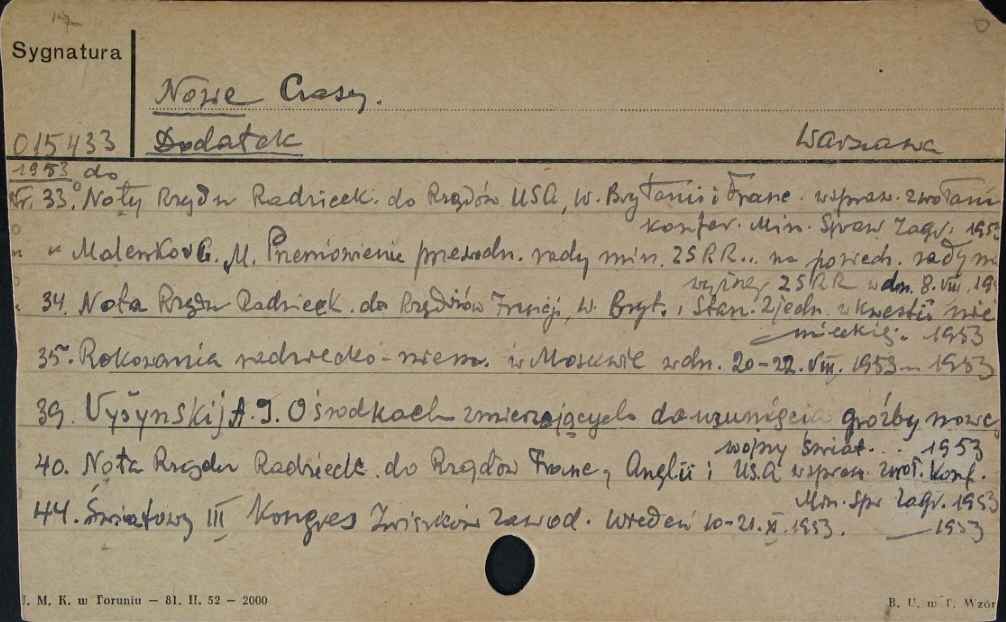 Sygnatura
Nowe Czasy.
015433 Dodatek Warszawa
1953 do
Nr. 33. Noty Rządu Radzieck. do Rządów USA, W. Brytanii i Franc. wspraw. zwołani
konfer. Min. Spraw Zagr. 1953
" Malenkov G. M. Przemówienie przewodn. rady min. ZSRR... na posiedz. rady n
wyższej ZSRR w dn. 8. VIII. 19
34. Nota Rządu Radzieck. do Rządów Francji, W. Bryt. i Stan. Zjedn. w kwestii nie
mieckiej. 1953
35. Rokowania radziecko-niem. w Moskwie w dn. 20-22. VIII. 1953 – 1953
39. Vyšynskij A. J. O środkach zmierzających do usunięcia groźby nowe
wojny świat... 1953
40. Nota Rządu Radzieck. do Rządów Franc., Anglii i USA wspraw. zwoł. Konf.
Min. Spr Zagr. 1953
44. Światowy III Kongres Związków Zawod. Wiedeń 10-21. X. 1953. — 1953
J. M. K. w Toruniu — 81. II. 52 — 2000
B. U. w T. Wzór